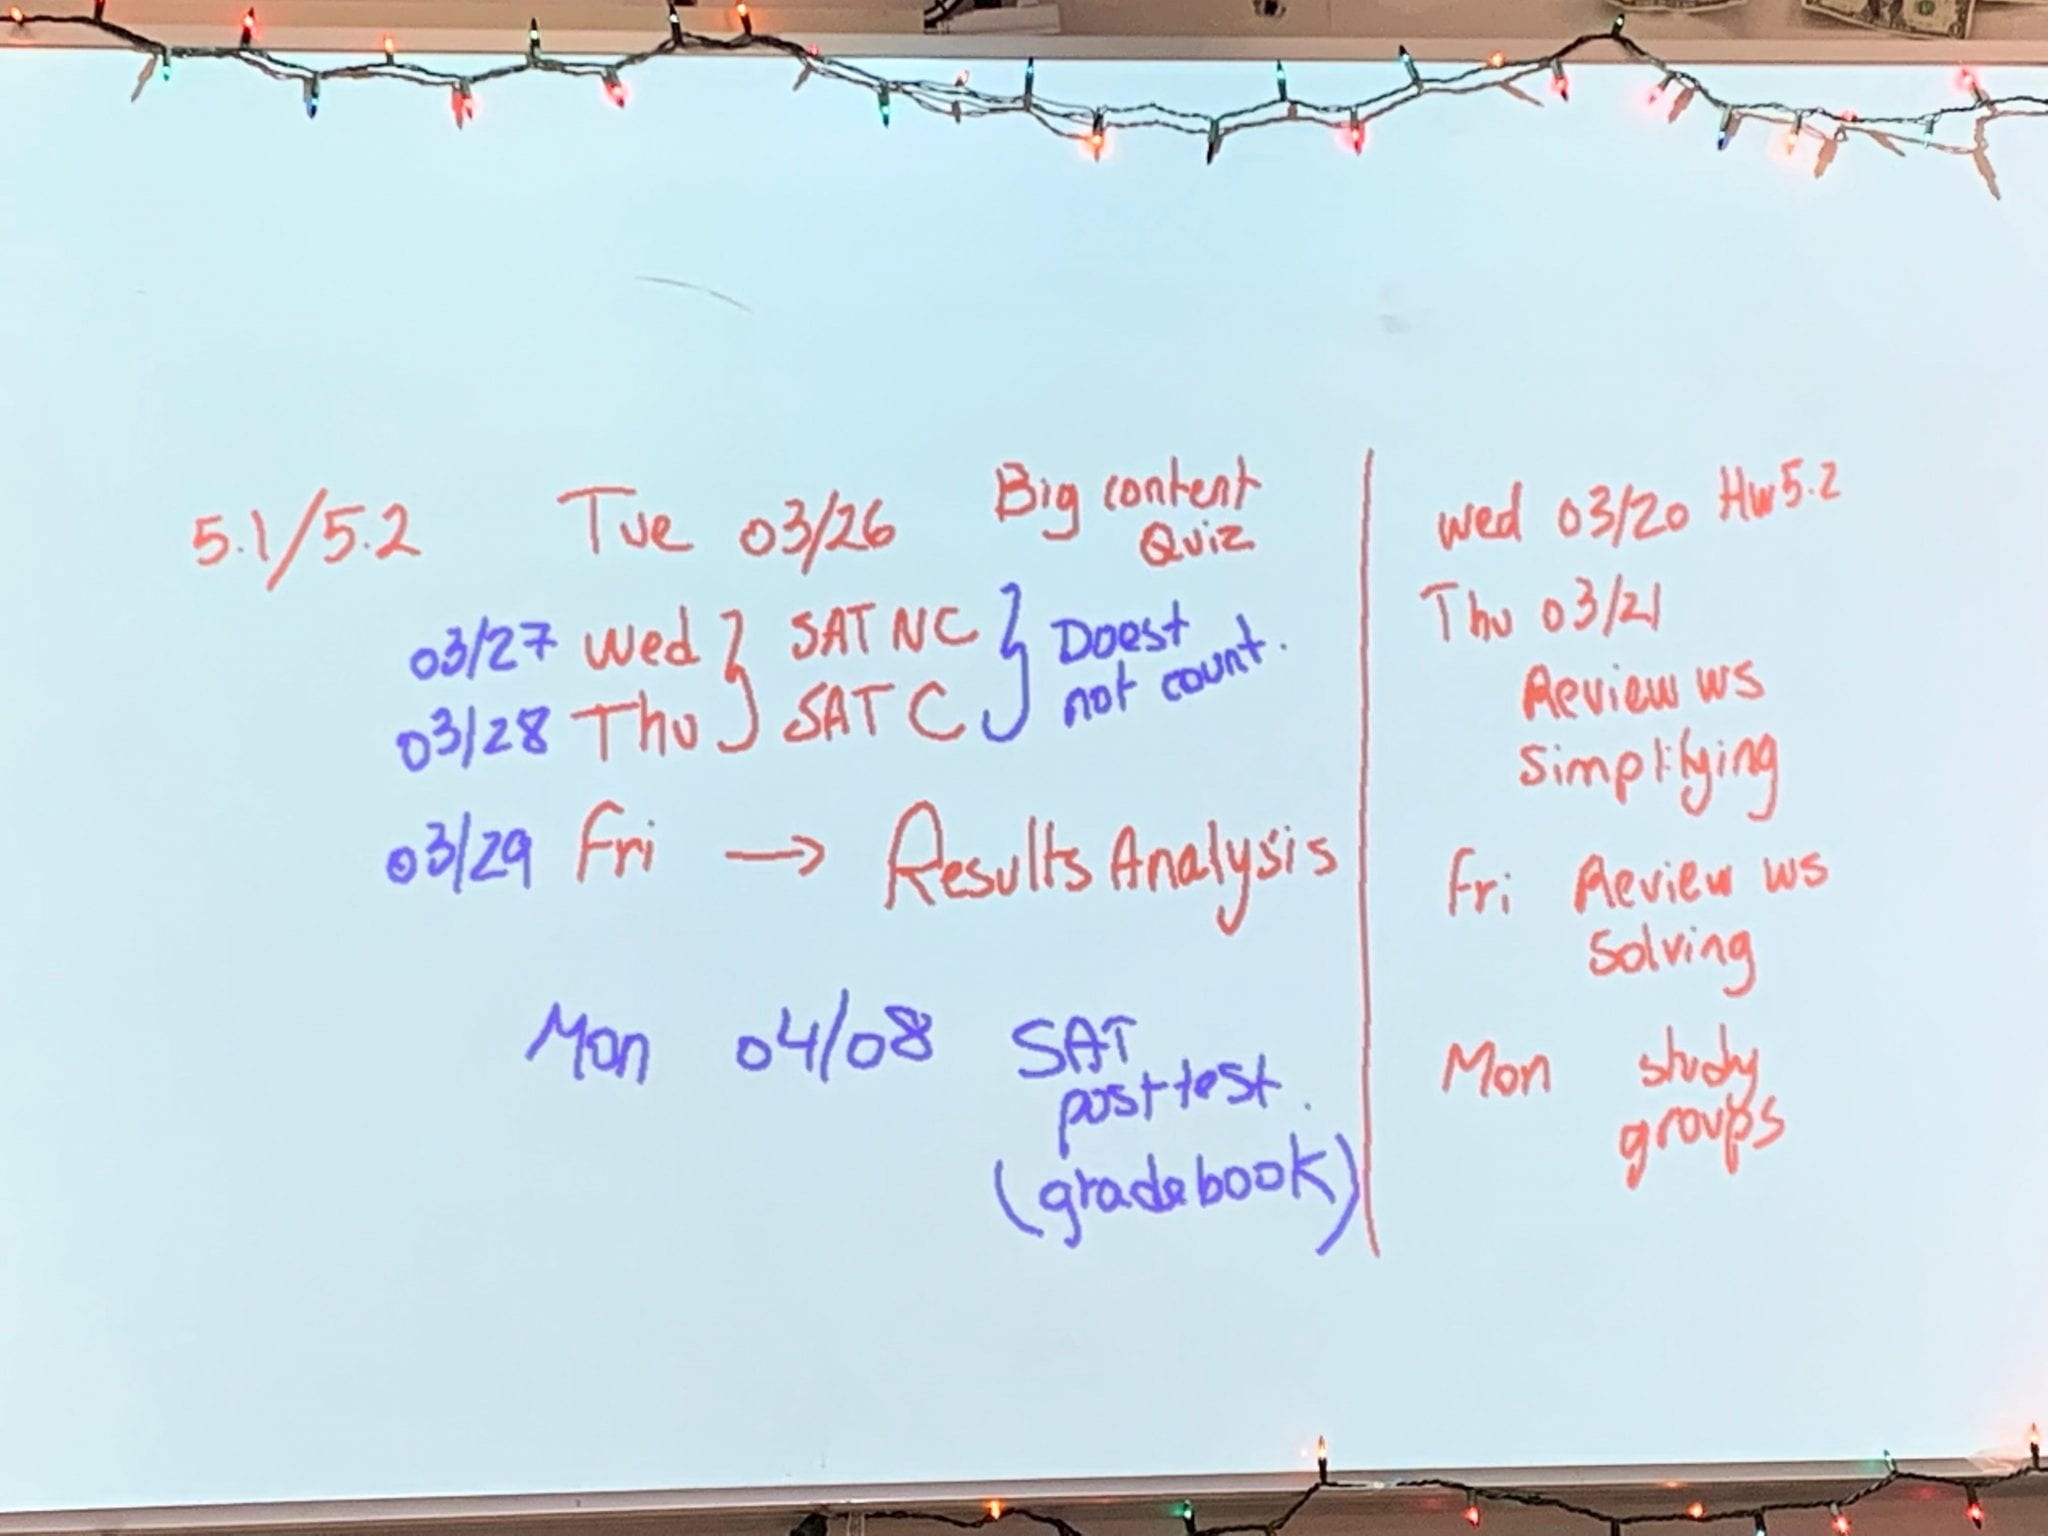 5.1/5.2 Tue 03/26 Big content
Quiz
03/27 Wed } SAT NC } Doest
03/28 Thu } SAT C } not count.
03/29 Fri → Results Analysis
Mon 04/08 SAT
post test.
(gradebook)
Wed 03/20 Hw 5.2
Thu 03/21
Review WS
Simplifying
Fri Review WS
Solving
Mon study
groups